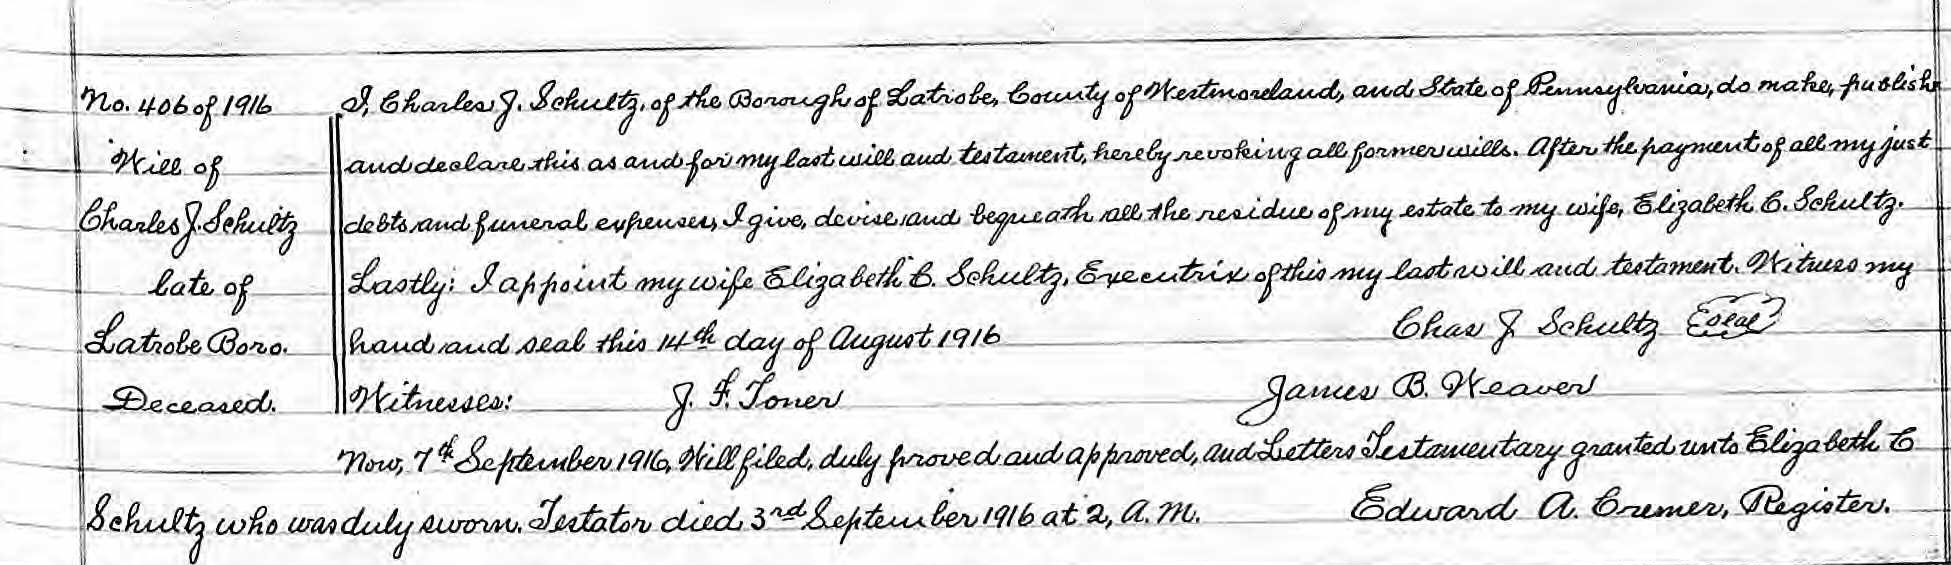 No. 406 of 1916
Will of
Charles J. Schultz
late of
Latrobe Boro.
Deceased.
I, Charles J. Schultz, of the Borough of Latrobe, County of Westmoreland, and State of Pennsylvania, do make, publish
and declare this as and for my last will and testament, hereby revoking all former wills. After the payment of all my just
debts and funeral expenses, I give, devise and bequeath all the residue of my estate to my wife, Elizabeth C. Schultz.
Lastly: I appoint my wife Elizabeth C. Schultz, Executrix of this my last will and testament. Witness my
hand and seal this 14th day of August 1916 Chas J. Schultz Seal
Witnesses: J. F. Toner James B. Weaver
Now, 7th September 1916, Will filed, duly proved and approved, and Letters Testamentary granted unto Elizabeth C
Schultz who was duly sworn. Testator died 3rd September 1916 at 2, A.M. Edward A. Cremer, Register.